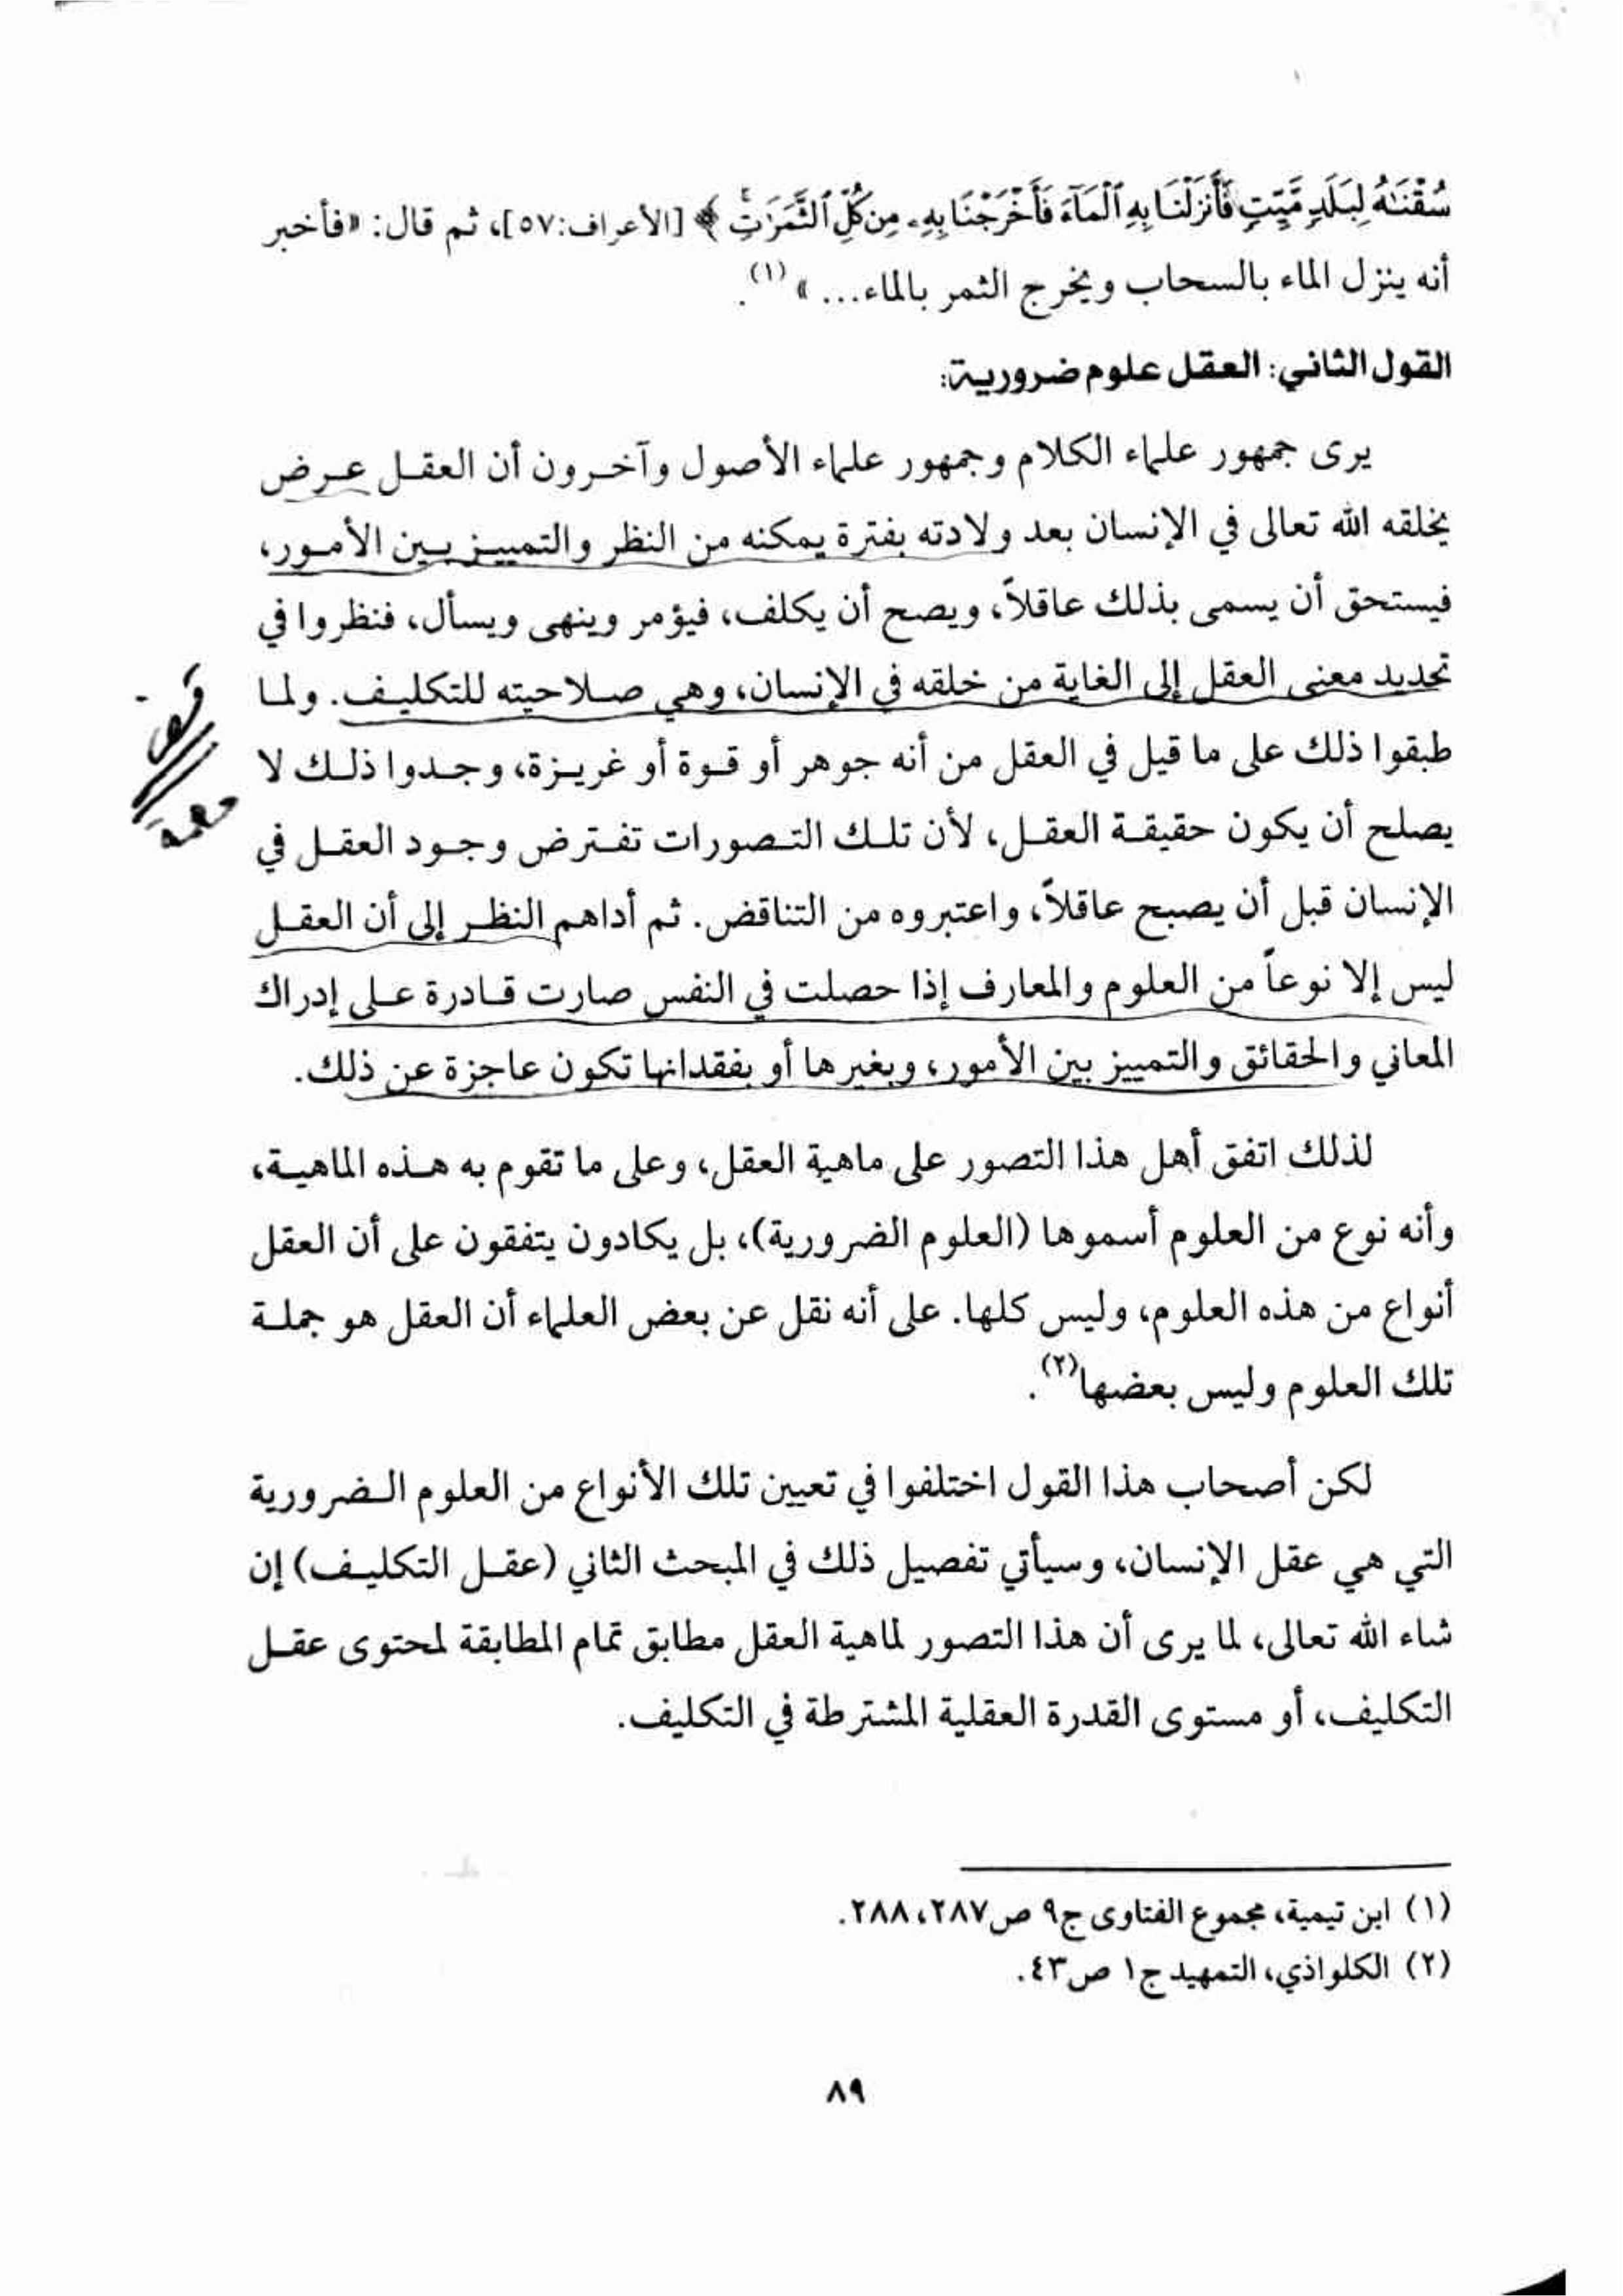 سُقْنَٰهُ لِبَلَدٍ مَّيِّتٍ فَأَنزَلْنَا بِهِ ٱلْمَآءَ فَأَخْرَجْنَا بِهِۦ مِن كُلِّ ٱلثَّمَرَٰتِۚ ﴾ [الأعراف:٥٧]، ثم قال: «فأخبر
أنه ينزل الماء بالسحاب ويخرج الثمر بالماء... » (١).
القول الثاني: العقل علوم ضرورية:
يرى جمهور علماء الكلام وجمهور علماء الأصول وآخرون أن العقل عرض
يخلقه الله تعالى في الإنسان بعد ولادته بفترة يمكنه من النظر والتمييز بين الأمور،
فيستحق أن يسمى بذلك عاقلاً، ويصح أن يكلف، فيؤمر وينهى ويسأل، فنظروا في
تحديد معنى العقل إلى الغاية من خلقه في الإنسان، وهي صلاحيته للتكليف. ولما
طبقوا ذلك على ما قيل في العقل من أنه جوهر أو قوة أو غريزة، وجدوا ذلك لا
يصلح أن يكون حقيقة العقل، لأن تلك التصورات تفترض وجود العقل في
الإنسان قبل أن يصبح عاقلاً، واعتبروه من التناقض. ثم أداهم النظر إلى أن العقل
ليس إلا نوعاً من العلوم والمعارف إذا حصلت في النفس صارت قادرة على إدراك
المعاني والحقائق والتمييز بين الأمور، وبغيرها أو بفقدانها تكون عاجزة عن ذلك.
لذلك اتفق أهل هذا التصور على ماهية العقل، وعلى ما تقوم به هذه الماهية،
وأنه نوع من العلوم أسموها (العلوم الضرورية)، بل يكادون يتفقون على أن العقل
أنواع من هذه العلوم، وليس كلها. على أنه نقل عن بعض العلماء أن العقل هو جملة
تلك العلوم وليس بعضها(٢).
لكن أصحاب هذا القول اختلفوا في تعيين تلك الأنواع من العلوم الضرورية
التي هي عقل الإنسان، وسيأتي تفصيل ذلك في المبحث الثاني (عقل التكليف) إن
شاء الله تعالى، لما يرى أن هذا التصور لماهية العقل مطابق تمام المطابقة لمحتوى عقل
التكليف، أو مستوى القدرة العقلية المشترطة في التكليف.
(١) ابن تيمية، مجموع الفتاوى ج٩ ص٢٨٧، ٢٨٨.
(٢) الكلواذي، التمهيد ج١ ص٤٣.
٨٩